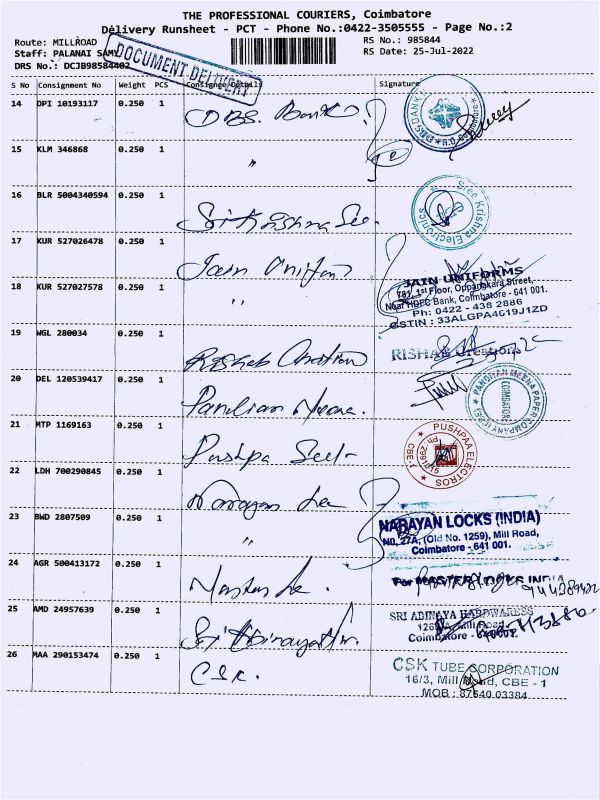 THE PROFESSIONAL COURIERS, Coimbatore
Delivery Runsheet - PCT - Phone No.:0422-3505555 - Page No.:2
Route: MILLROAD RS No.: 985844
Staff: PALANAI SAMY RS Date: 25-Jul-2022
DRS No.: DCJB98584402
DOCUMENT DELIVERY
S No Consignment No Weight PCS Consignee Details Signature
14 DPI 10193117 0.250 1 DBS. Bank
15 KLM 346868 0.250 1 "
16 BLR 5004340594 0.250 1 Sri Krishna
Sree Krishna Electronics
17 KUR 527026478 0.250 1 Jain
18 KUR 527027578 0.250 1 "
JAIN UNIFORMS
781, 1st Floor, Oppanakara Street,
Near HDFC Bank, Coimbatore - 641 001.
Ph: 0422 - 438 2886
GSTIN : 33ALGPA4619J1ZD
19 WGL 280034 0.250 1 Rishab
RISHAB Creations
20 DEL 120539417 0.250 1 Pandian
PANDIAN MEENA PAPER COMPANY (CBE)
COIMBATORE
21 MTP 1169163 0.250 1 Pushpa
PUSHPAA ELECTROS
CBE-1
22 LDH 700290845 0.250 1 Narayan
23 BWD 2807509 0.250 1 "
NARAYAN LOCKS (INDIA)
NO, 27A, (Old No. 1259), Mill Road,
Coimbatore - 641 001.
24 AGR 500413172 0.250 1 Master
For MASTER LOCKS INDIA
25 AMD 24957639 0.250 1 Sri Abinaya
SRI ABINAYA HARDWARESS
Mill Road
Coimbatore -
26 MAA 290153474 0.250 1 CSK.
CSK TUBE CORPORATION
16/3, Mill Road, CBE - 1
MOB : 87540 03384